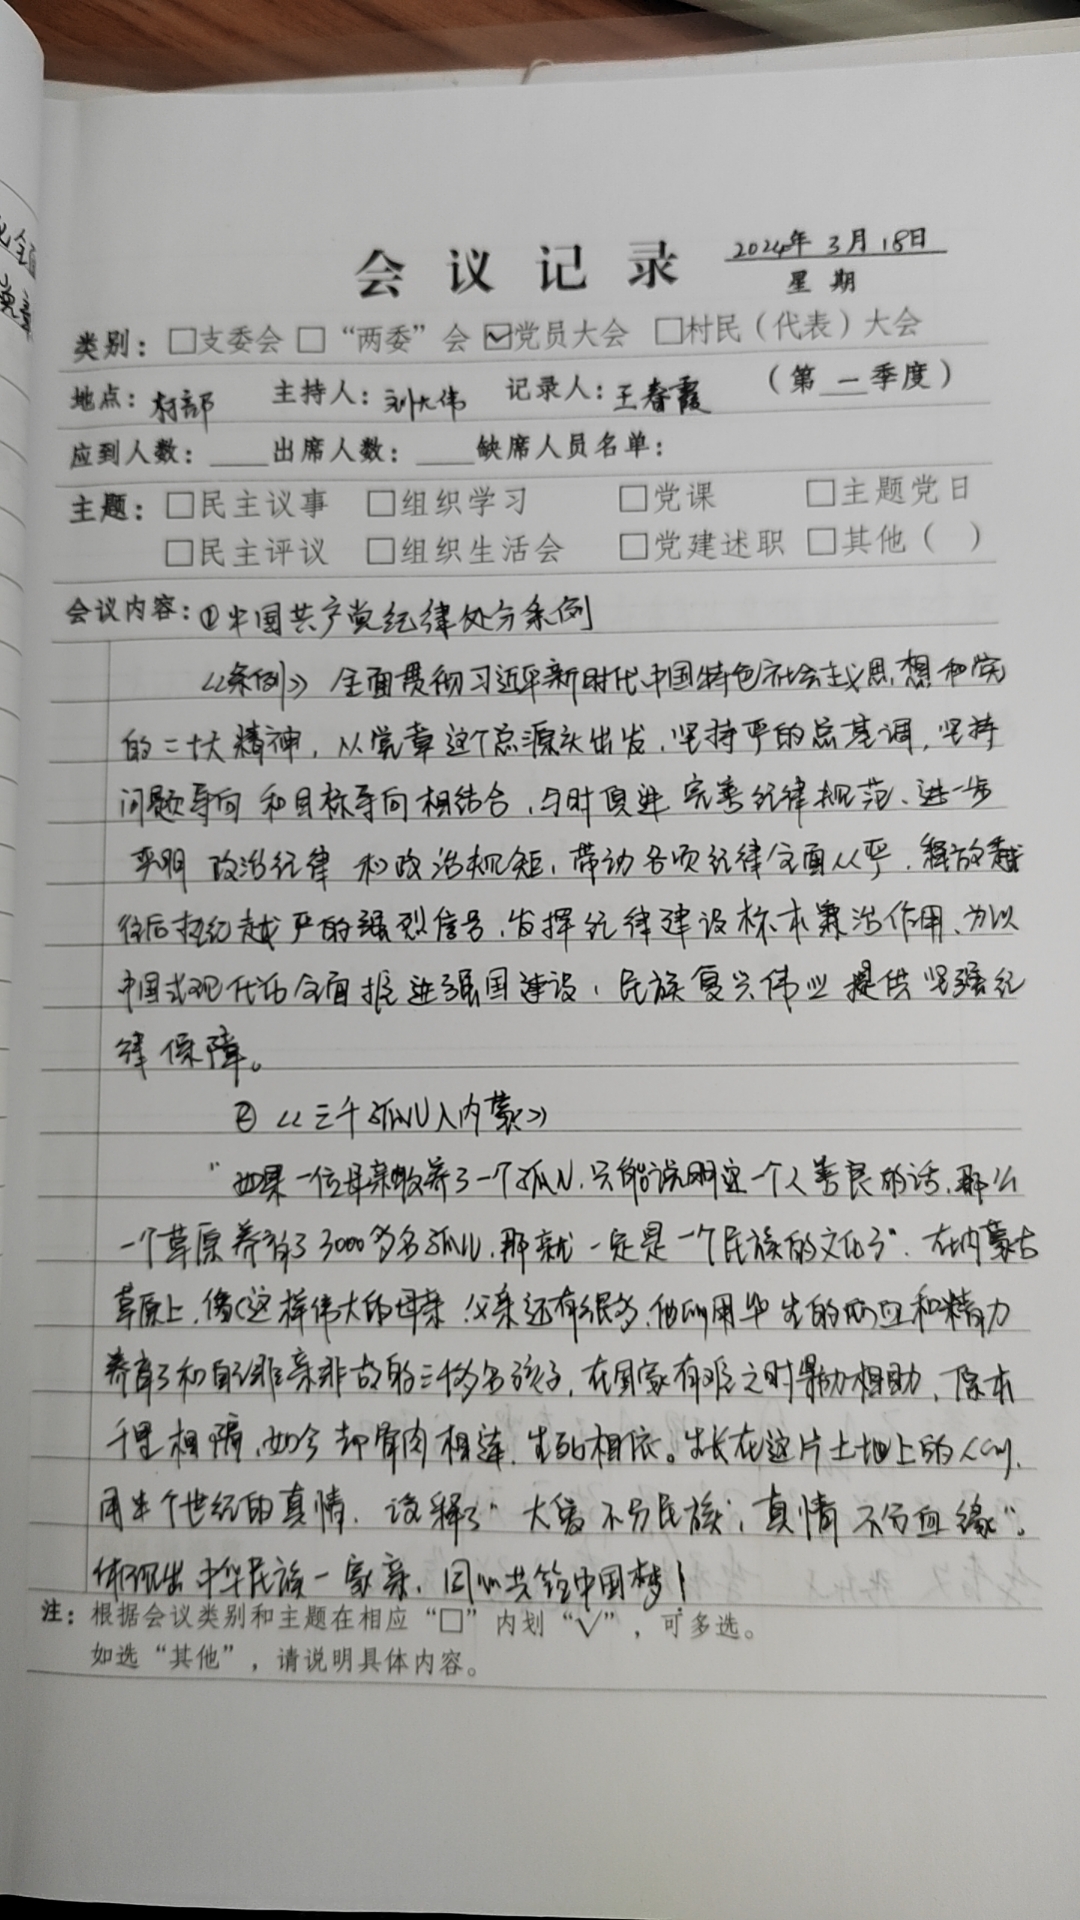 会议记录 2024年3月18日
星期
类别：□支委会 □“两委”会 ☑党员大会 □村民（代表）大会
地点：村部 主持人：刘大伟 记录人：王春霞 （第一季度）
应到人数：____出席人数：____缺席人员名单：
主题：□民主议事 □组织学习 □党课 □主题党日
□民主评议 □组织生活会 □党建述职 □其他（ ）
会议内容：①中国共产党纪律处分条例
《条例》全面贯彻习近平新时代中国特色社会主义思想和党
的二十大精神，从党章这个总源头出发，坚持严的总基调，坚持
问题导向和目标导向相结合，与时俱进完善纪律规范、进一步
严明政治纪律和政治规矩，带动各项纪律全面从严，释放越
往后执纪越严的强烈信号，发挥纪律建设标本兼治作用，为以
中国式现代化全面推进强国建设，民族复兴伟业提供坚强纪
律保障。
②《三千孤儿入内蒙》
“如果一位母亲收养了一个孤儿，只能说明这一个人善良的话，那么
一个草原养育了3000多名孤儿，那就一定是一个民族的文化了”．在内蒙古
草原上，像这样伟大的母亲、父亲还有很多，他们用毕生的心血和精力
养育了和自己非亲非故的三千多名孩子，在国家有难之时鼎力相助，原本
千里相隔，如今却骨肉相连，生死相依。生长在这片土地上的人们，
用半个世纪的真情，诠释了“大爱不分民族；真情不分血缘”。
体现出中华民族一家亲，同心共筑中国梦！
注：根据会议类别和主题在相应“□”内划“√”，可多选。
如选“其他”，请说明具体内容。